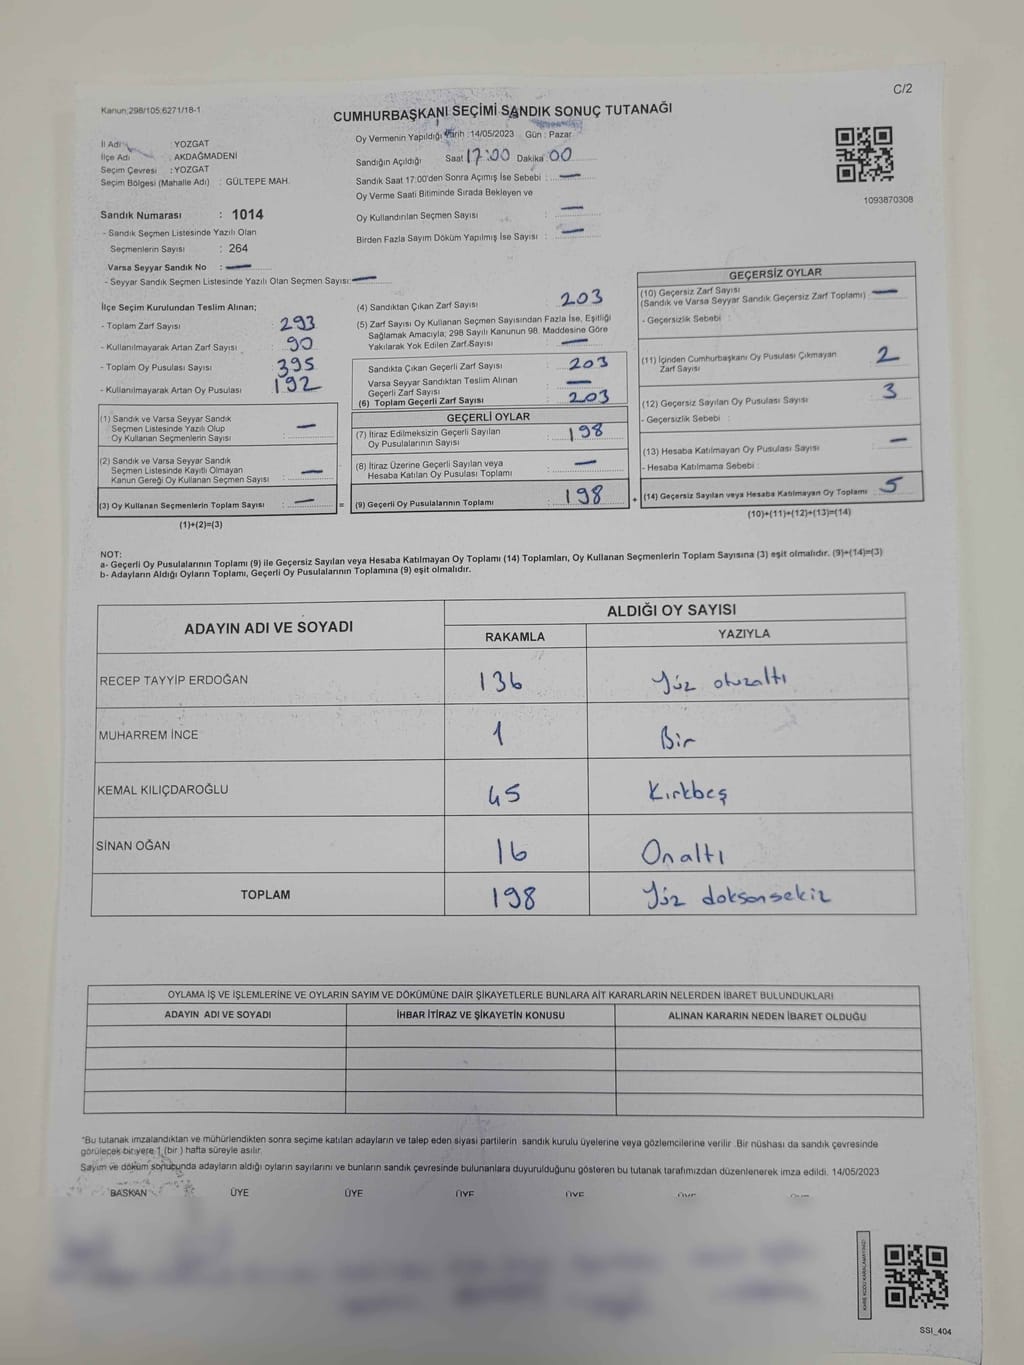 Kanun:298/105:6271/18-1
C/2
CUMHURBAŞKANI SEÇİMİ SANDIK SONUÇ TUTANAĞI
Oy Vermenin Yapıldığı Tarih :14/05/2023 Gün : Pazar
İl Adı : YOZGAT
İlçe Adı : AKDAĞMADENİ
Seçim Çevresi : YOZGAT
Seçim Bölgesi (Mahalle Adı) : GÜLTEPE MAH.
Sandığın Açıldığı Saat 17:00 Dakika : 00
Sandık Saat 17:00'den Sonra Açımış İse Sebebi : —
Oy Verme Saati Bitiminde Sırada Bekleyen ve
Oy Kullandırılan Seçmen Sayısı : —
Birden Fazla Sayım Döküm Yapılmış İse Sayısı : —
1093870308
Sandık Numarası : 1014
- Sandık Seçmen Listesinde Yazılı Olan
Seçmenlerin Sayısı : 264
Varsa Seyyar Sandık No : —
- Seyyar Sandık Seçmen Listesinde Yazılı Olan Seçmen Sayısı: —
İlçe Seçim Kurulundan Teslim Alınan;
- Toplam Zarf Sayısı : 293
- Kullanılmayarak Artan Zarf Sayısı : 90
- Toplam Oy Pusulası Sayısı : 395
- Kullanılmayarak Artan Oy Pusulası : 192
(1) Sandık ve Varsa Seyyar Sandık
Seçmen Listesinde Yazılı Olup
Oy Kullanan Seçmenlerin Sayısı : —
(2) Sandık ve Varsa Seyyar Sandık
Seçmen Listesinde Kayıtlı Olmayan
Kanun Gereği Oy Kullanan Seçmen Sayısı : —
(3) Oy Kullanan Seçmenlerin Toplam Sayısı : — =
(1)+(2)=(3)
(4) Sandıktan Çıkan Zarf Sayısı : 203
(5) Zarf Sayısı Oy Kullanan Seçmen Sayısından Fazla İse, Eşitliği
Sağlamak Amacıyla; 298 Sayılı Kanunun 98. Maddesine Göre
Yakılarak Yok Edilen Zarf Sayısı : —
Sandıkta Çıkan Geçerli Zarf Sayısı : 203
Varsa Seyyar Sandıktan Teslim Alınan
Geçerli Zarf Sayısı : —
(6) Toplam Geçerli Zarf Sayısı : 203
GEÇERLİ OYLAR
(7) İtiraz Edilmeksizin Geçerli Sayılan
Oy Pusulalarının Sayısı : 198
(8) İtiraz Üzerine Geçerli Sayılan veya
Hesaba Katılan Oy Pusulası Toplamı : —
(9) Geçerli Oy Pusulalarının Toplamı : 198 +
GEÇERSİZ OYLAR
(10) Geçersiz Zarf Sayısı
(Sandık ve Varsa Seyyar Sandık Geçersiz Zarf Toplamı) : —
- Geçersizlik Sebebi :
(11) İçinden Cumhurbaşkanı Oy Pusulası Çıkmayan
Zarf Sayısı : 2
(12) Geçersiz Sayılan Oy Pusulası Sayısı : 3
- Geçersizlik Sebebi :
(13) Hesaba Katılmayan Oy Pusulası Sayısı : —
- Hesaba Katılmama Sebebi :
(14) Geçersiz Sayılan veya Hesaba Katılmayan Oy Toplamı : 5
(10)+(11)+(12)+(13)=(14)
NOT:
a- Geçerli Oy Pusulalarının Toplamı (9) ile Geçersiz Sayılan veya Hesaba Katılmayan Oy Toplamı (14) Toplamları, Oy Kullanan Seçmenlerin Toplam Sayısına (3) eşit olmalıdır. (9)+(14)=(3)
b- Adayların Aldığı Oyların Toplamı, Geçerli Oy Pusulalarının Toplamına (9) eşit olmalıdır.
ADAYIN ADI VE SOYADI
ALDIĞI OY SAYISI
RAKAMLA YAZIYLA
RECEP TAYYİP ERDOĞAN 136 Yüz otuzaltı
MUHARREM İNCE 1 Bir
KEMAL KILIÇDAROĞLU 45 Kırkbeş
SİNAN OĞAN 16 Onaltı
TOPLAM 198 Yüz doksansekiz
OYLAMA İŞ VE İŞLEMLERİNE VE OYLARIN SAYIM VE DÖKÜMÜNE DAİR ŞİKAYETLERLE BUNLARA AİT KARARLARIN NELERDEN İBARET BULUNDUKLARI
ADAYIN ADI VE SOYADI İHBAR İTİRAZ VE ŞİKAYETİN KONUSU ALINAN KARARIN NEDEN İBARET OLDUĞU
*Bu tutanak imzalandıktan ve mühürlendikten sonra seçime katılan adayların ve talep eden siyasi partilerin sandık kurulu üyelerine veya gözlemcilerine verilir .Bir nüshası da sandık çevresinde
görülecek bir yere 1 (bir ) hafta süreyle asılır.
Sayım ve döküm sonucunda adayların aldığı oyların sayılarını ve bunların sandık çevresinde bulunanlara duyurulduğunu gösteren bu tutanak tarafımızdan düzenlenerek imza edildi. 14/05/2023
BAŞKAN ÜYE ÜYE ÜYE ÜYE ÜYE
SSI_404